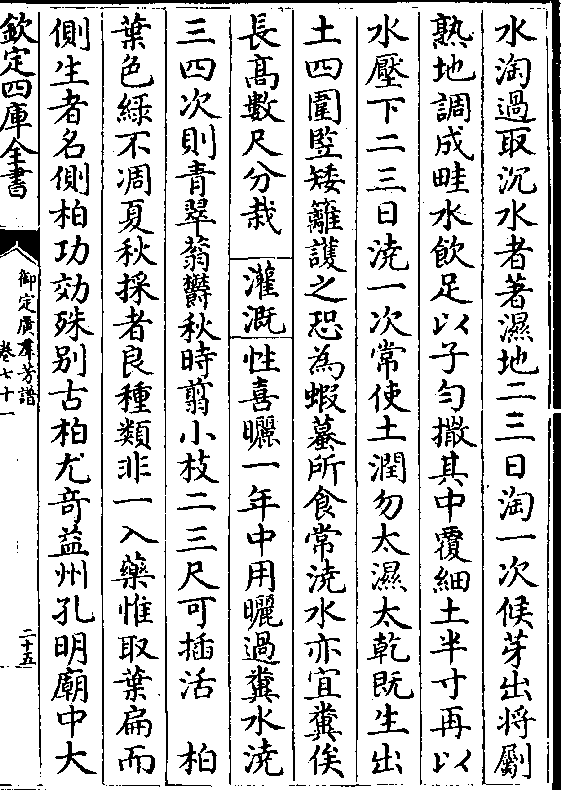 水淘過取沉水者著濕地二三日淘一次候芽出将劚
熟地調成畦水飲足以子勻撒其中覆細土半寸再以
水壓下二三日澆一次常使土潤勿太濕太乾既生出
土四圍竪矮籬護之恐為蝦蟇所食常澆水亦宜糞俟
長髙數尺分栽 灌溉 性喜曬一年中用曬過糞水澆
三四次則青翠蓊欝秋時翦小枝二三尺可插活 柏
葉色綠不凋夏秋採者良種類非一入藥惟取葉扁而
側生者名側柏功効殊别古柏尤竒益州孔明廟中大
欽定四庫全書
御定廣羣芳譜
卷七十一
二十五